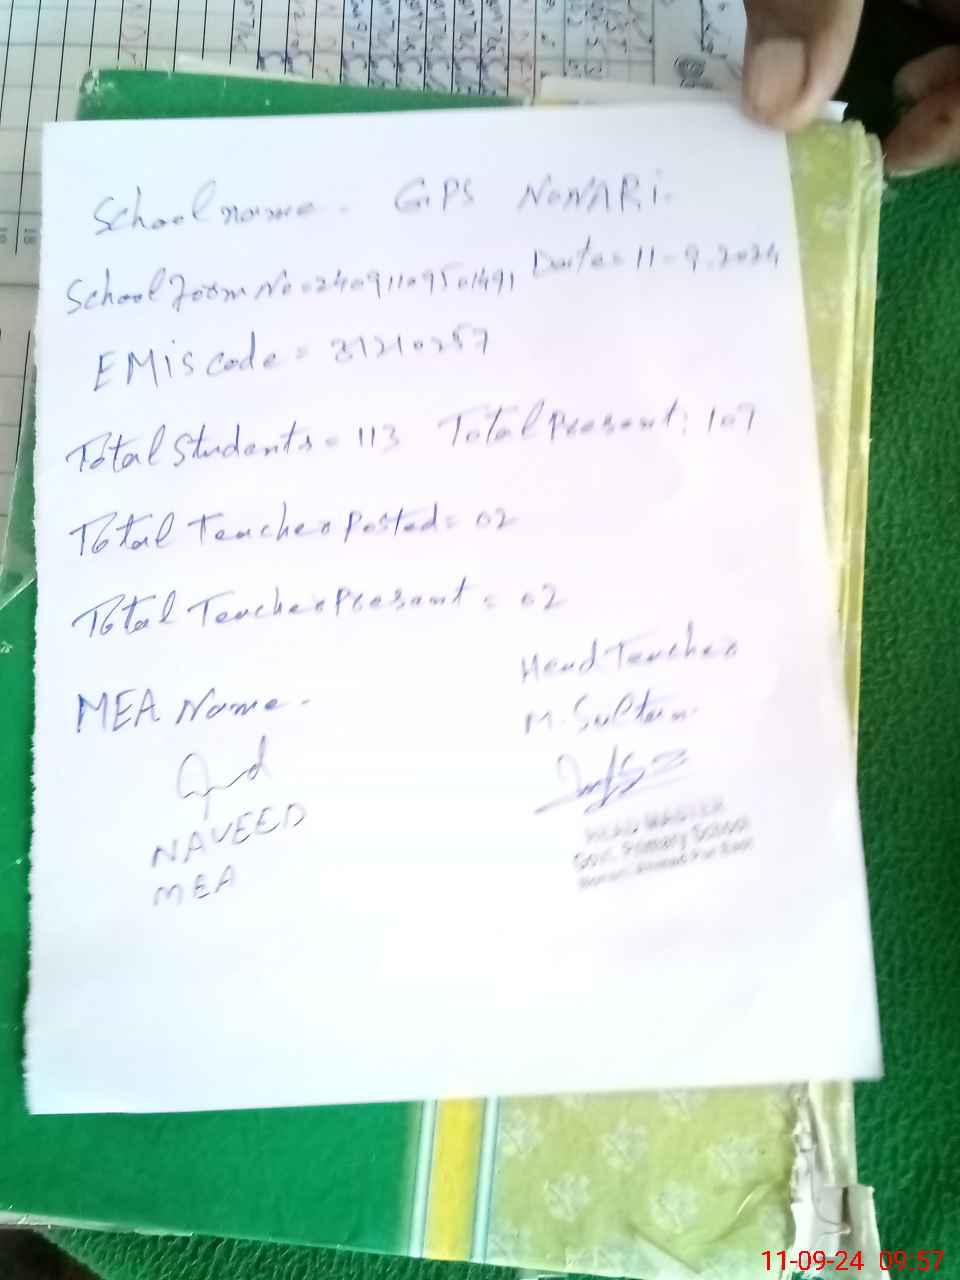 School name - GPS NONARi.
School form No = 24091109501491 Date = 11-9-2024
EMiS code = 31210257
Total Students = 113 Total Present: 107
Total Teacher Posted = 02
Total Teacher Present = 02
Head Teacher
MEA Name -
M. Sultan
NAVEED
MEA
HEAD MASTER
Govt. Primary School
11-09-24 09:57